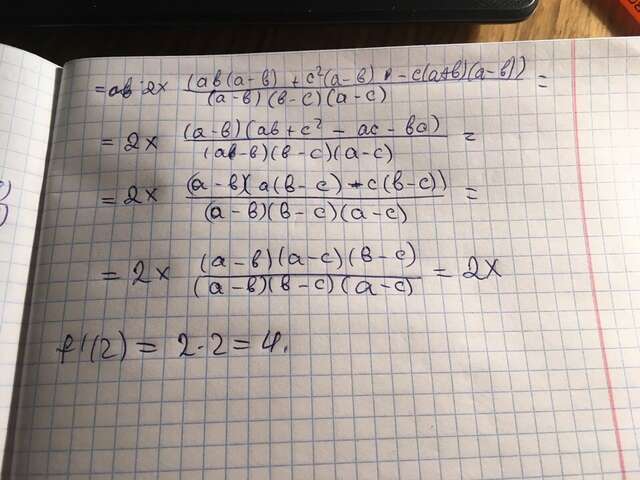 = 2x ((ab(a-b) + c²(a-b) - c(a+b)(a-b)) / ((a-b)(b-c)(a-c)) =
= 2x ((a-b)(ab+c² - ac - bc) / ((a-b)(b-c)(a-c)) =
= 2x ((a-b)(a(b-c) - c(b-c)) / ((a-b)(b-c)(a-c)) =
= 2x ((a-b)(a-c)(b-c)) / ((a-b)(b-c)(a-c)) = 2x
f'(2) = 2·2 = 4.